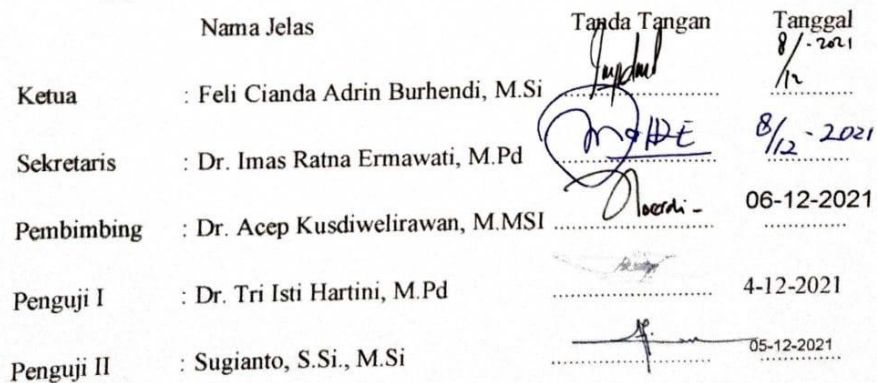 Nama Jelas Tanda Tangan Tanggal
Ketua : Feli Cianda Adrin Burhendi, M.Si .................. 8/12 - 2021
Sekretaris : Dr. Imas Ratna Ermawati, M.Pd .................. 8/12 - 2021
Pembimbing : Dr. Acep Kusdiwelirawan, M.MSI .................. 06-12-2021
Penguji I : Dr. Tri Isti Hartini, M.Pd .................. 4-12-2021
Penguji II : Sugianto, S.Si., M.Si .................. 05-12-2021